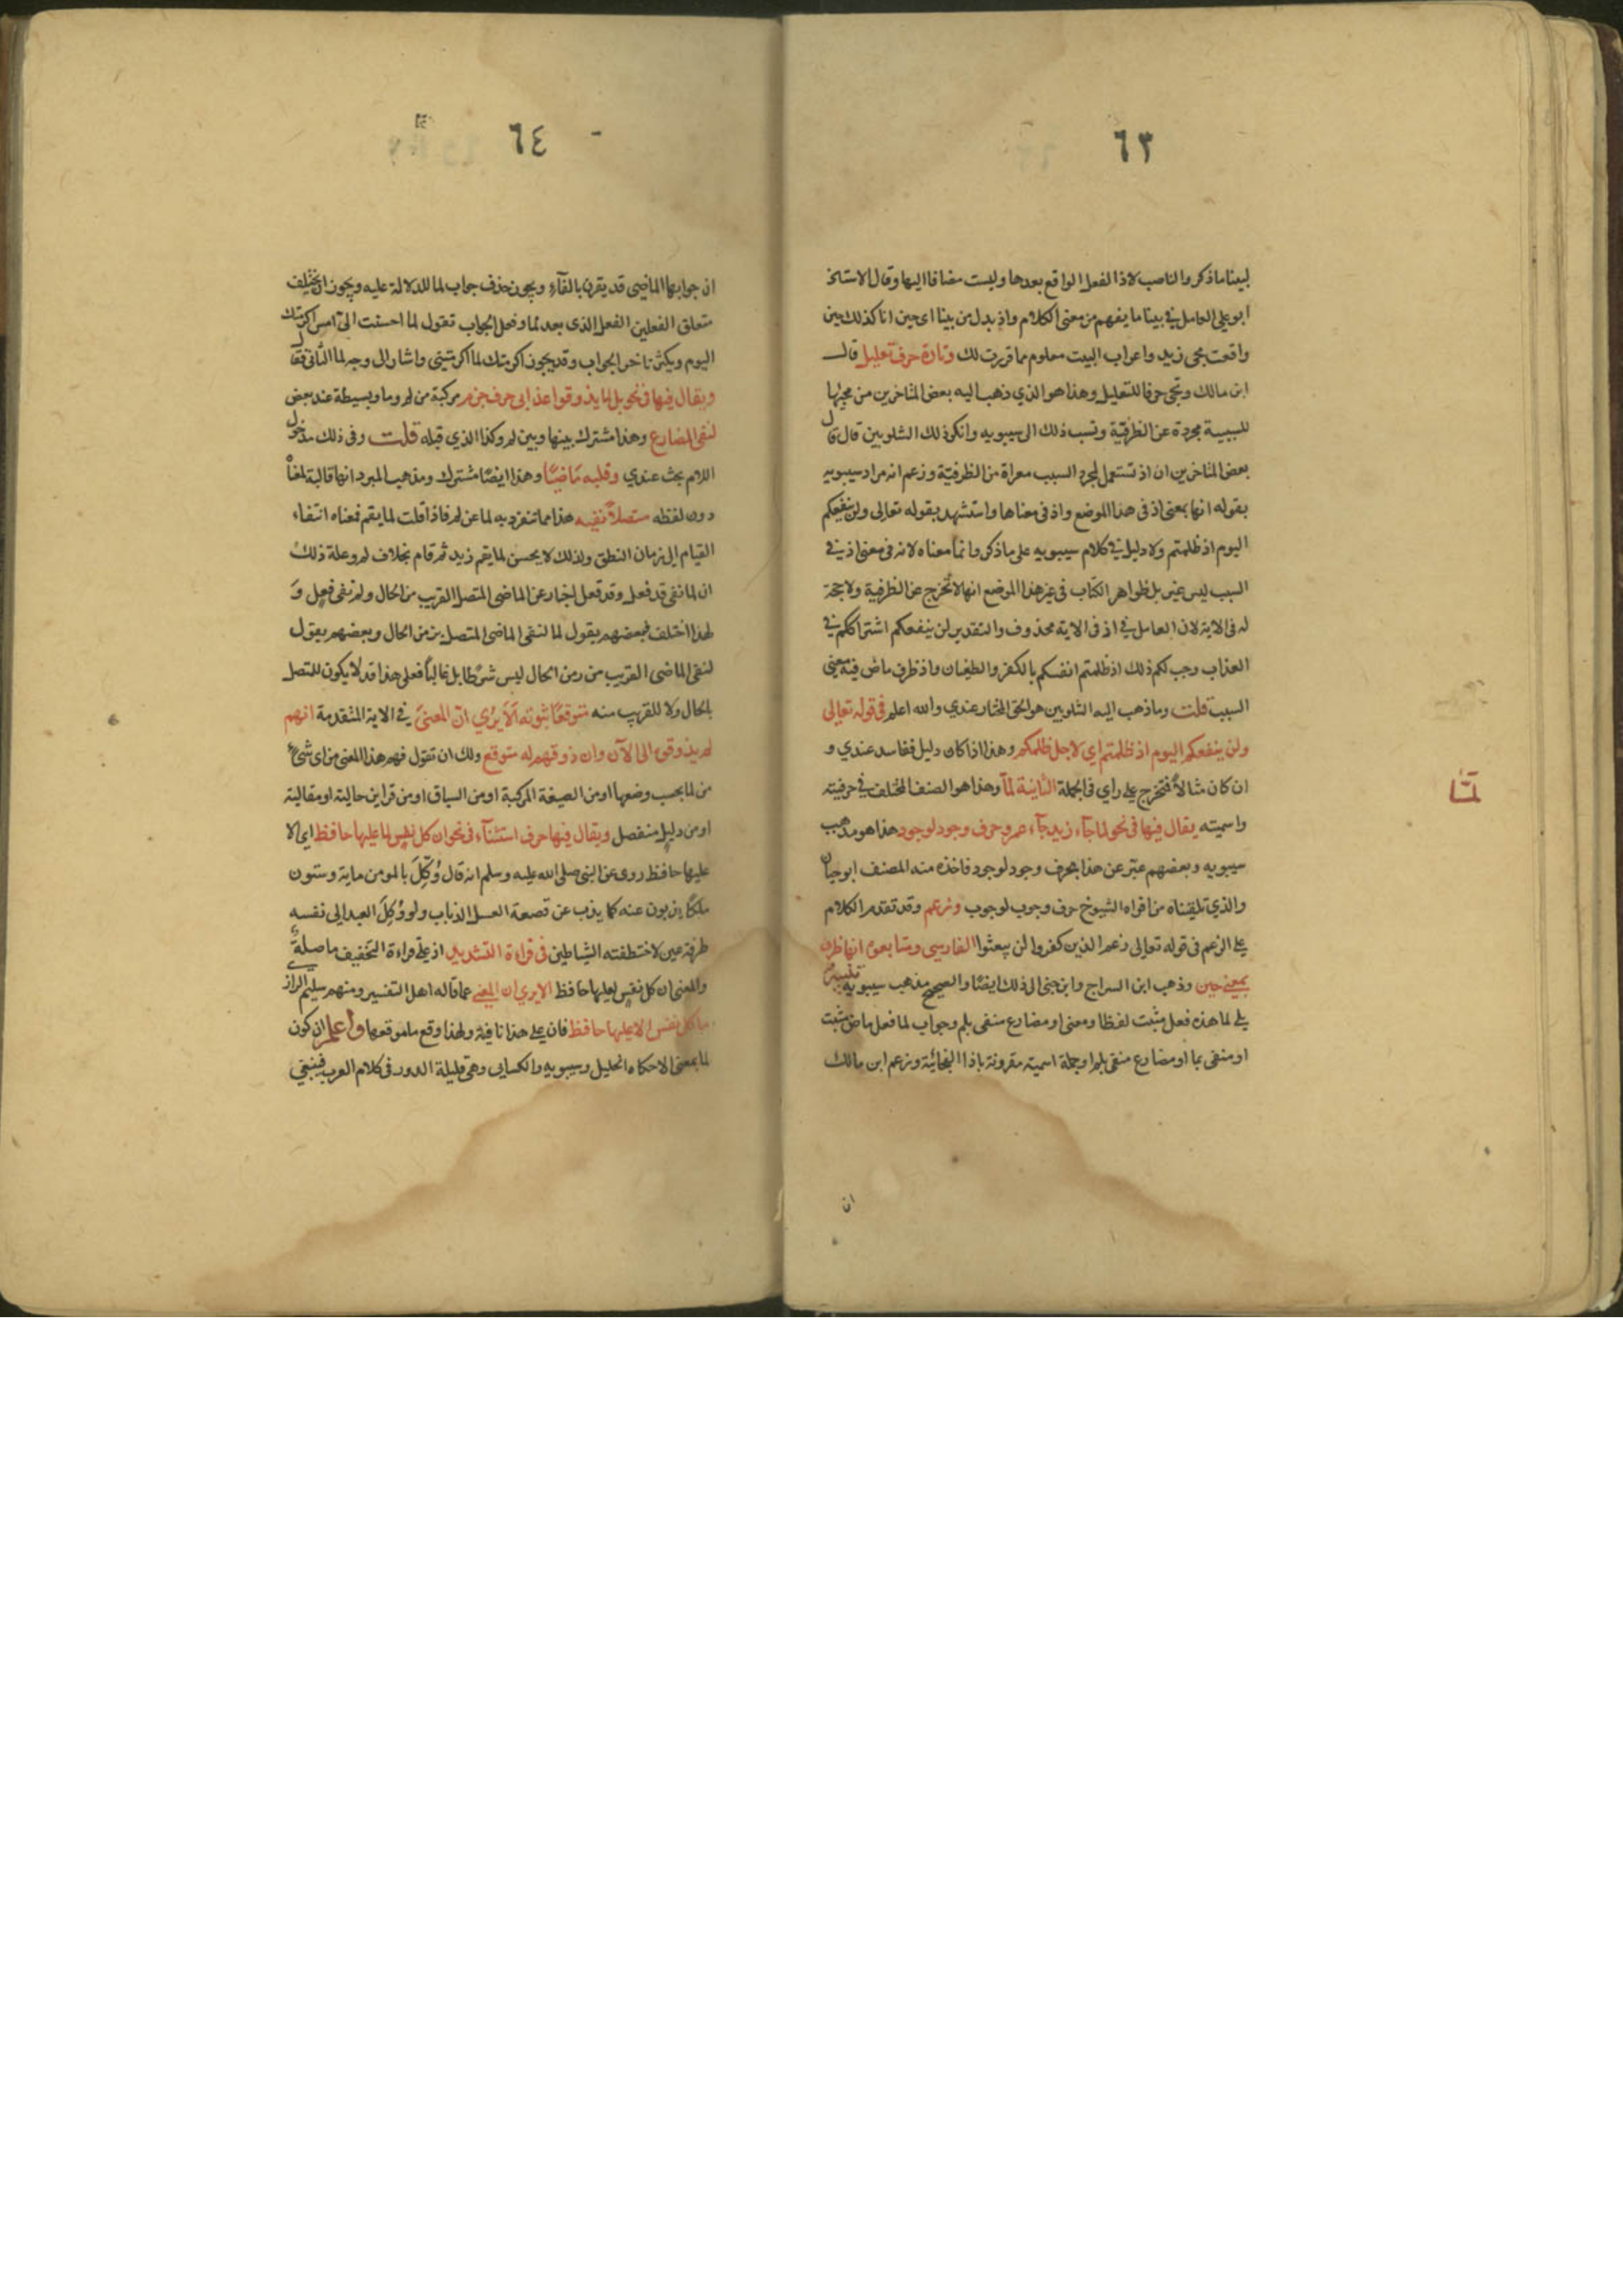 ٦٣
لبينا ما ذكر والناصب لاذ الفعل الواقع بعدها وليست مضافا اليها وقال الاستاذ
ابو علي العامل في بينا ما يفهم من معنى الكلام واذ بدل من بينا اي حين انا كذلك حين
واقعت مجى زيد واعراب البيت معلوم مما قررت لك وتارة حرف تعليل قال
ابن مالك وتجى حرفا للتعليل وهذا هو الذي ذهب اليه بعض المتاخرين من مجيئها
للسببية مجردة عن الظرفية ونسب ذلك الى سيبويه وانكر ذلك الشلوبين قال قال
بعض المتاخرين ان اذ تستعمل لمجرد السبب معراة من الظرفية وزعم انه مراد سيبويه
بقوله انها بمعنى اذ في هذا الموضع واذ في معناها واستشهد بقوله تعالى ولن ينفعكم
اليوم اذ ظلمتم ولا دليل في كلام سيبويه على ما ذكر وانما معناه لانه في معنى اذ في
السبب ليس غير بل ظواهر الكتاب في غير هذا الموضع انها لا تخرج عن الظرفية ولا حجة
له في الاية لان العامل في اذ في الاية محذوف والتقدير لن ينفعكم اشتراككم في
العذاب وجب لكم ذلك اذ ظلمتم انفسكم بالكفر والطغيان واذ ظرف ماض فيه معنى
السبب قلت وما ذهب اليه الشلوبين هو الحق المختار عندي والله اعلم في قوله تعالى
ولن ينفعكم اليوم اذ ظلمتم اي لاجل ظلمكم وهذا اذا كان دليل ففاسد عندي و
ان كان مثالا فتخرج على راي في الجملة الثانية لمّا وهذا هو الصنف المختلف في حرفيته
لمّا
واسميته يقال فيها في نحو لما جاء زيد جاء عمرو حرف وجود لوجود هذا هو مذهب
سيبويه وبعضهم عبّر عن هذا بحرف وجود لوجود فاخذه منه المصنف ابو حيان
والذي تلقيناه من افواه الشيوخ حرف وجوب لوجوب وزعم وقد تقدم الكلام
على الزعم في قوله تعالى زعم الذين كفروا لن يبعثوا الفارسي ومتابعوه انها ظرف
بمعنى حين وذهب ابن السراج وابن جنى الى ذلك ايضًا والصحيح مذهب سيبويه تنبيه
يلي لما هذه فعل مثبت لفظا ومعنى او مضارع منفى بلم وجواب لما فعل ماض مثبت
او منفى بما او مضارع منفى بلم او جملة اسمية مقرونة باذا الفجائية وزعم ابن مالك
ان
٦٤
ان جوابها الماضي قد يقرن بالفاء ويجوز حذف جواب لما للدلالة عليه ويجوز ان يختلف
متعلق الفعلين الفعل الذي بعد لما وفعل الجواب تقول لما احسنت اليّ امس اكرمتك
اليوم ويكثر تاخر الجواب وقد يجوز اكرمتك لما اكرمتني واشار الى وجه لما الثاني فقال
ويقال فيها في نحو بل لما يذوقوا عذابي حرف جزم مركبة من لم وما وبسيطة عند بعض
لنفي المضارع وهذا مشترك بينها وبين لم وكذا الذي قبله قلت وفي ذلك مدخول
اللام بحث عندي وقلبه مَاضيًا وهذا ايضًا مشترك ومذهب المبرد انها قالبة لمعناه
دون لفظه متصلاً نفيه هذا مما تنفرد به لما عن لم فاذا قلت لما يقم فمعناه انتفاء
القيام الى زمان النطق ولذلك لا يحسن لما يقم زيد ثم قام بخلاف لم وعلة ذلك
ان لما نفي قد فعل وقد فعل اخبار عن الماضي المتصل القريب من الحال ولم نفى فعل وَ
لهذا اختلف فبعضهم يقول لما لنفى الماضي المتصل بزمن الحال وبعضهم يقول
لنفى الماضي القريب من زمن الحال ليس شرطا بل غالبًا فعلى هذا قد لا يكون للمتصل
بالحال ولا للقريب منه متوقعًا ثبوته اَلاَ يرى انّ المعنى في الاية المتقدمة انهم
لم يذوقوه الى الآن وان ذوقهم له متوقع ولك ان تقول فهم هذا المعنى من اى شىء
من لما بحسب وضعها او من الصيغة المركبة او من السياق او من قراين حالية او مقالية
او من دليل منفصل ويقال فيها حرف استثناء في نحو ان كل نفس لما عليها حافظ اي الا
عليها حافظ روى عن النبي صلى الله عليه وسلم انه قال وُكّلَ بالمومن ماية وستون
ملكًا يذبون عنه كما يذب عن قصعة العسل الذباب ولو وُكِلَ العبد الى نفسه
طرفة عين لاختطفته الشياطين في قراءة التشديد اذ على قراءة التخفيف ما صلة
والمعنى ان كل نفس لعليها حافظ الا يرى ان المعنى عما قاله اهل التفسير ومنهم سليم الرازي
ما كل نفس الا عليها حافظ فان على هذا نافية ولهذا وقع ما موقعها واعلم ان كون
لما بمعنى الا حكاه الخليل وسيبويه والكسايى وهي قليلة الدور في كلام العرب فينبغي